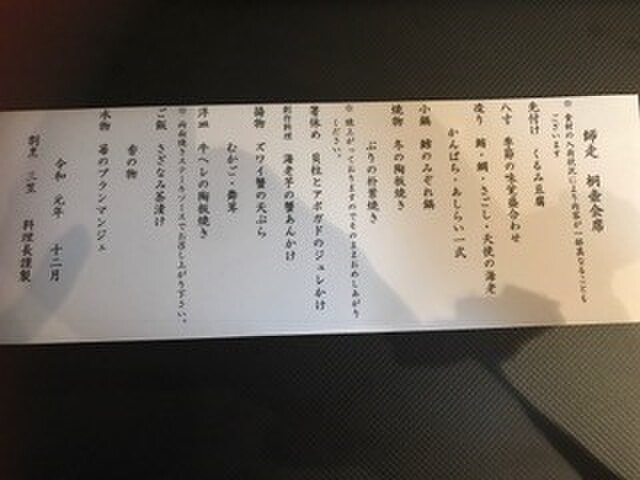 師走 桐壷会席
※ 食材の入荷状況により内容が一部異なることも
ございます
先付け くるみ豆腐
八寸 季節の味覚盛合わせ
造り 鮪・鯛・さごし・天使の海老
かんぱち・あしらい一式
小鍋 鱈のみぞれ鍋
焼物 冬の陶板焼き
ぶりの朴葉焼き
※ 焼上がっておりますのでそのままお召しあがり
ください。
箸休め 貝柱とアボガドのジュレかけ
創作料理 海老芋の蟹あんかけ
揚物 ズワイ蟹の天ぷら
むかご・舞茸
洋皿 牛ヘレの陶板焼き
※ 両面焼きステーキソースでお召し上がり下さい。
ご飯 さざなみ茶漬け
香の物
水物 苺のブランマンジェ
令和 元年 十二月
割烹 三笠 料理長謹製